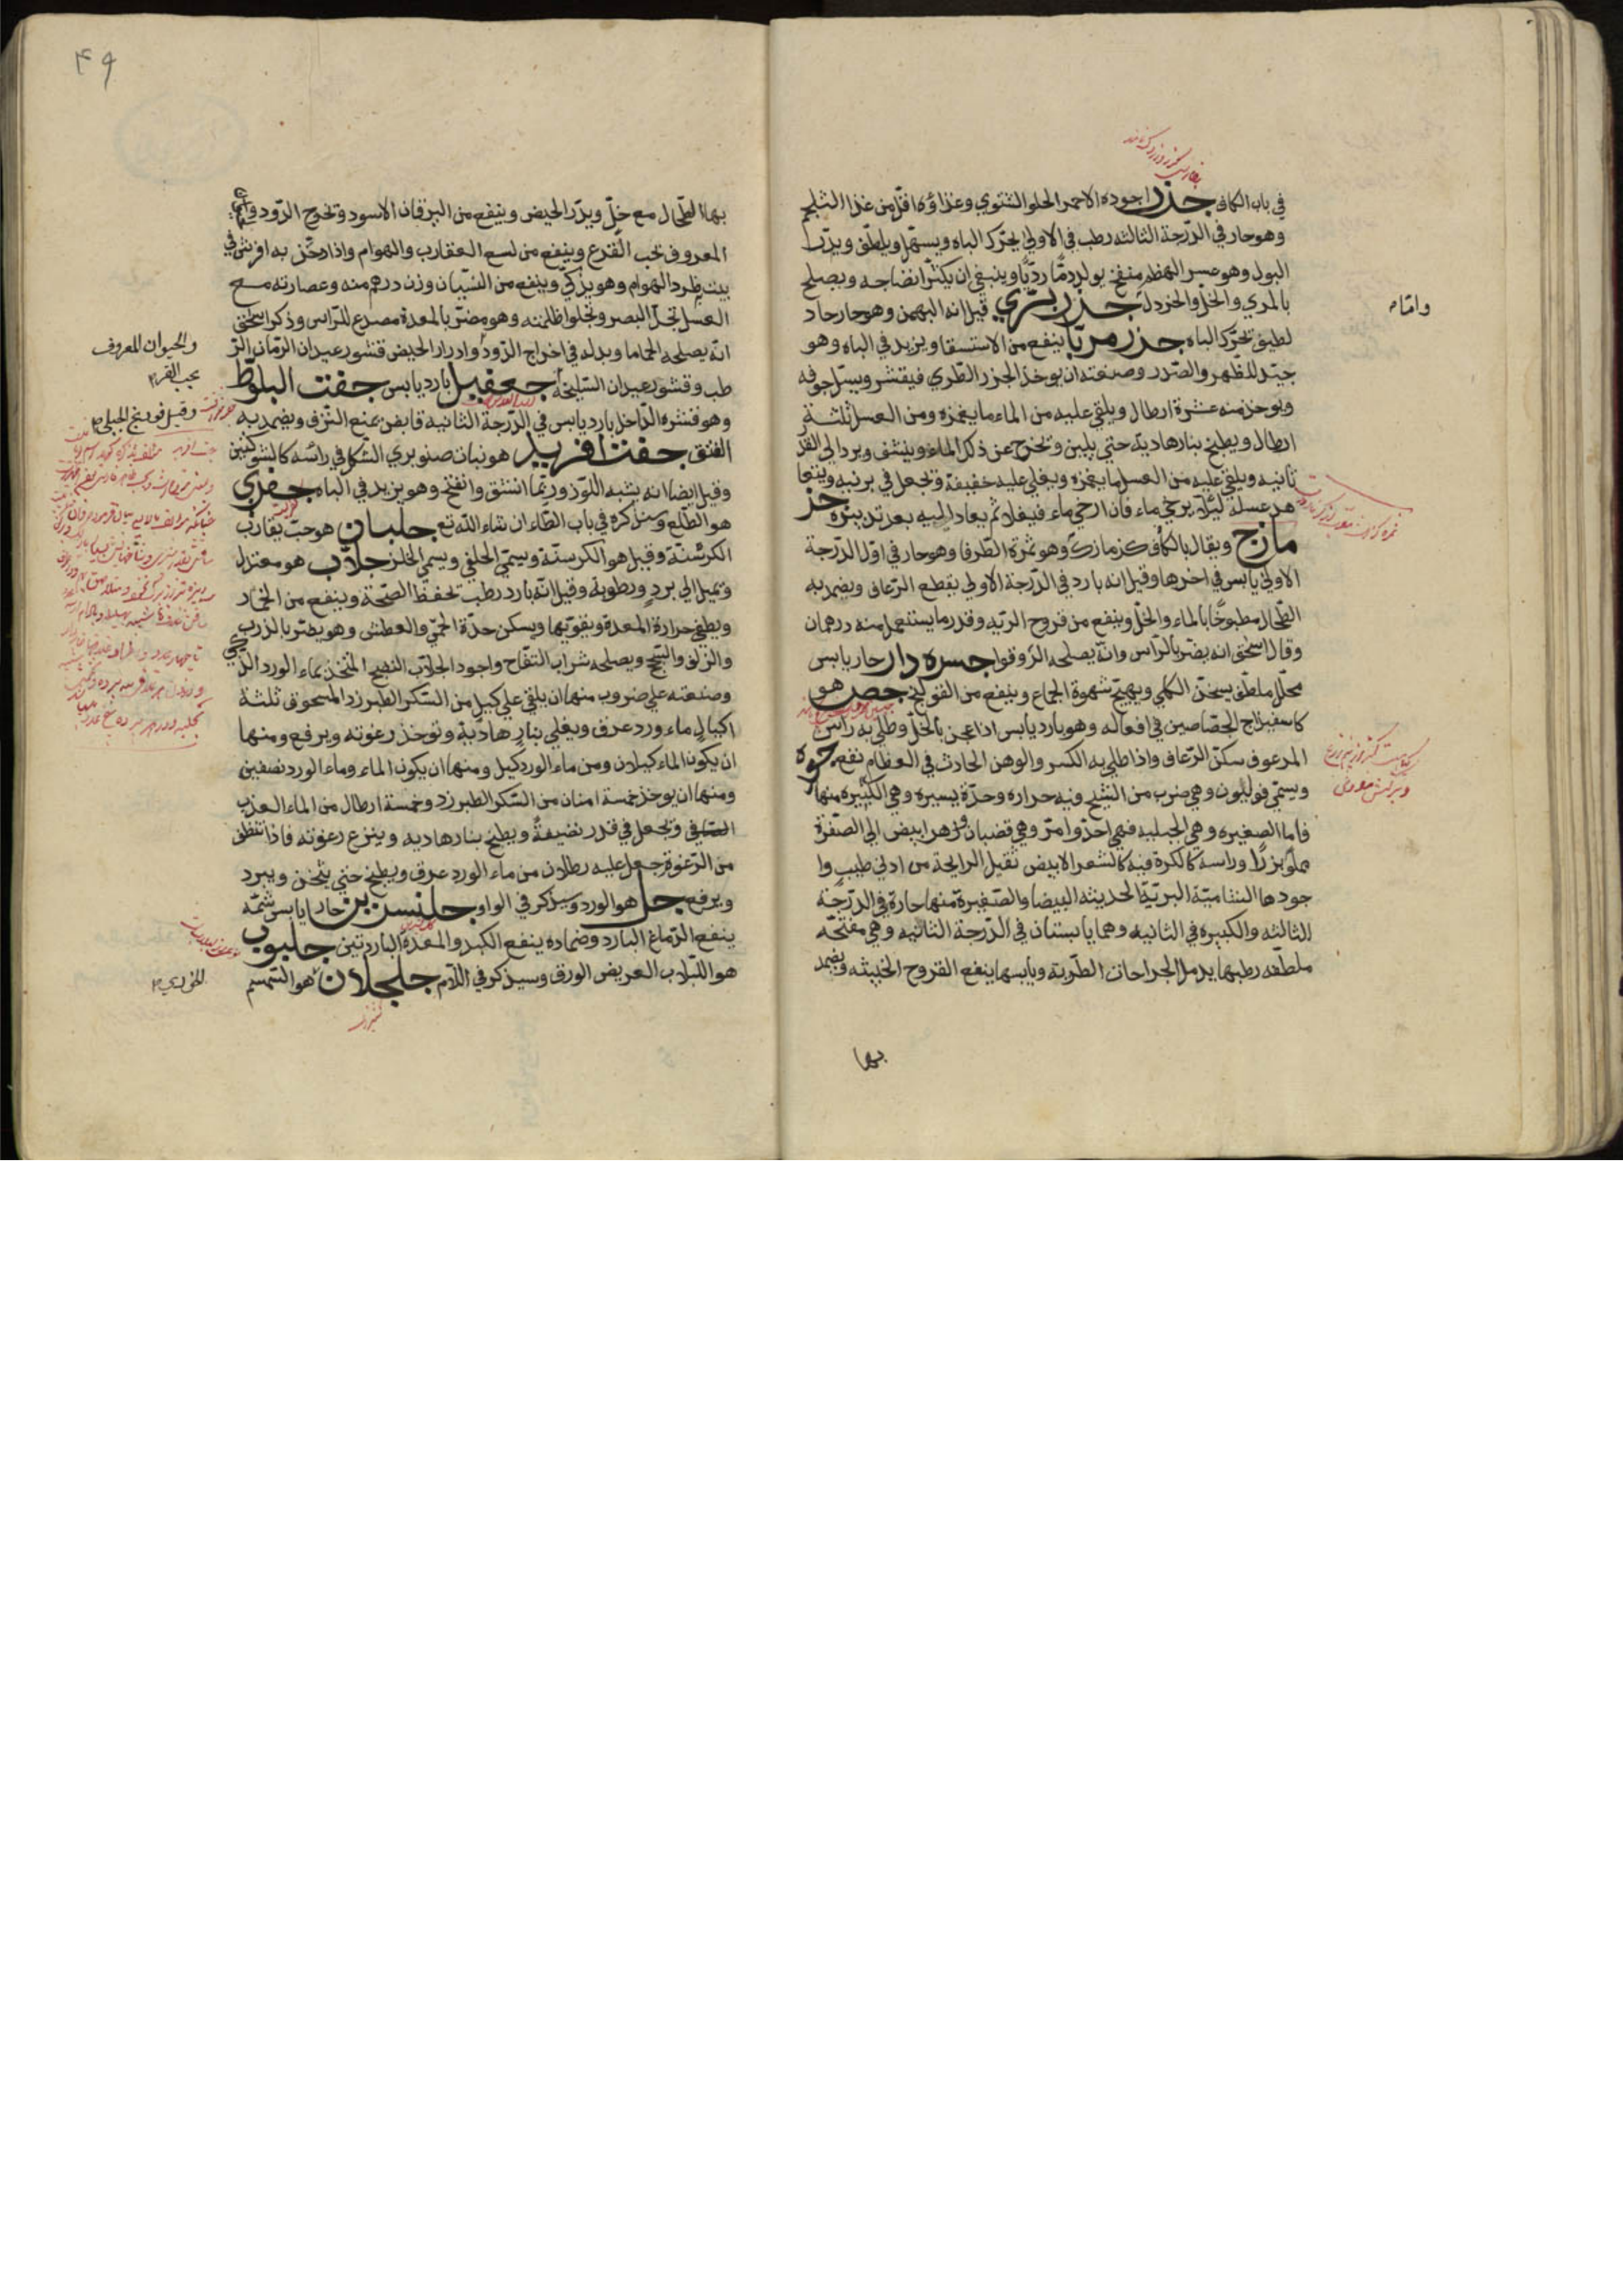 في باب الكاف جذر اجوده الاحمر الحلو الشتوي وغذاؤه اقل من غذا الشلجم
وهو حار في الدرجة الثالثه رطب في الاولي يحرّك الباه ويسهّل ويلطّف ويدرّ
البول وهو عسر الهظم منفخ يولد دمًّا رديًّا وينبغي ان يكثر انضاجه ويصلح
بالمري والخلّ والخردل جذر برّي قيل انه البهمن وهو حار حاد
لطيف تحرّك الباه جذر مربّا ينفع من الاستسقا ويزيد في الباه وهو
جيّد للظهر والصدر وصنعته ان يوخذ الجزر الطري فيقشر ويسلّ جوفه
ويوخذ منه عشرة ارطال ويلقي عليه من الماء ما يغمره ومن العسل ثلثة
ارطال ويطبخ بنار هاديّة حتي يلين وتخرج عن ذلك الماء وينشف ويرد الي القدر
ثانيه ويلقي عليه من العسل ما يغمره ويغلي عليه خفيفة وتجعل في برنيه ويتعا
هد عسله ليئلا يرخي ماء فان ارخي ماء فيغلا ثم يعاد اليه بعد تدبيره جز
مازج ويقال بالكاف كزمازك وهو ثمرة الطرفا وهو حار في اوّل الدرجة
الاولي يابس في اخرها وقيل انه بارد في الدرجة الاولي يقطع الرعاف ويضمد به
الطحال مطبوخًا بالماء والخلّ وينفع من قروح الريه وقدر ما يستعمل منه درهمان
وقال اسحق انه يضرّ بالرّاس وانّه يصلحه الزوفا جسره دار حار يابس
محلّل ملطّف يسخّن الكلي ويهيّج شهوة الجماع وينفع من القولنج جص هو
كاسفيذاج الجصّاصين في افعاله وهو بارد يابس اذا عجن بالخلّ وطلي به راس
المرعوف سكّن الرعاف واذا طلي به الكسر والوهن الحادث في العظام نفع
ويسمّي فوليون وهي ضرب من الشيح وفيه حراره وحدّة يسيره وهي الكبيره منها
فاما الصغيره وهي الجبليه فهي احدّ وامرّ وهي قضبان وزهر ابيض الي الصفرة
مملوّ بزرًا وراسه كالكرة فيه كالشعر الابيض ثقيل الرايحة من ادني طيب وا
جودها الشاميّة البريّة الحديثه البيضا والصغيرة منها حارة في الدرجة
الثالثه والكبيره في الثانيه وهما يابستان في الدرجة الثانيه وهي مفتحّه
ملطفه رطبها يدمل الجراحات الطريّة ويابسها ينفع القروح الخبيثه ويضمد
بها
وامّا
۴۹
بها الطحال مع خلّ ويدرّ الحيض وينفع من اليرقان الاسود وتخرج الدود
المعروف بحب القرع وينفع من لسع العقارب والهوام واذا دخّن به او فرش في
بيت طرد الهوام وهو يذكّي وينفع من النسيان وزن درهم منه وعصارته مع
العسل تحدّ البصر وتجلوا ظلمته وهو مضرّ بالمعدة مصدع للراس وذكر اسحق
انه يصلحه الحماما وبدله في اخراج الدود وادرار الحيض قشور عيدان الرمان الر
طب وقشور عيدان السليخة جعفيل بارد يابس جفت البلوّط
وهو قشره الدّاخل بارد يابس في الدرجة الثانيه قابض يمنع النزف ويضمد به
الفتق جفت افريد هو نبات صنوبري الشكل في رائسه كالشوكتين
وقيل ايضا انه يشبه اللوز وربّما انشق وانفتح وهو يزيد في الباه جفري
هو الطلع وسنذكره في باب الطاء ان شاء الله تع جلبان هو حبّ يقارب
الكرسنة وقيل هو الكرسنة ويسمّي الحلفي ويسمي الخلر جلاّب هو معتدل
وتميل الي برد ورطوبة وقيل انّه بارد رطب تحفظ الصحّة وينفع من الخمار
ويطفي حرارة المعدة ويقويّها ويسكن حدّة الحمّي والعطش وهو يضرّ بالذرب
والزلق والسّحج ويصلحه شراب التفّاح واجود الجلاّب النضيج المتّخذ بماء الورد الذكي
وصنعته علي ضروب منها ان يلقي علي كيل من السكّر الطبرزد المسحوق ثلثة
اكيال ماء ورد عرق ويغلي بنار هاديّة وتوخذ رغوته ويرفع ومنها
ان يكون الماء كيلان ومن ماء الورد كيل ومنها ان يكون الماء وماء الورد نصفين
ومنها ان يوخذ خمسة امنان من السكّر الطبرزد وخمسة ارطال من الماء العذب
الصّافي وتجعل في قدر نضيفة ويطبخ بنار هاديه وينزع رغوته فاذا تنظف
من الرغوة جعل عليه رطلان من ماء الورد عرق ويطبخ حتي يثخن ويبرد
ويرفع جل هو الورد وسيذكر في الواو جلنسرين حار يابس شمّه
ينفع الدماغ البارد وضماده ينفع الكبد والمعدة الباردتين جلبوب
هو اللبلاب العريض الورق وسيذكر في اللام جلجلان هو السمسم
والحيوان المعروف
بحب القرع
وقيل فودنج الجبلي